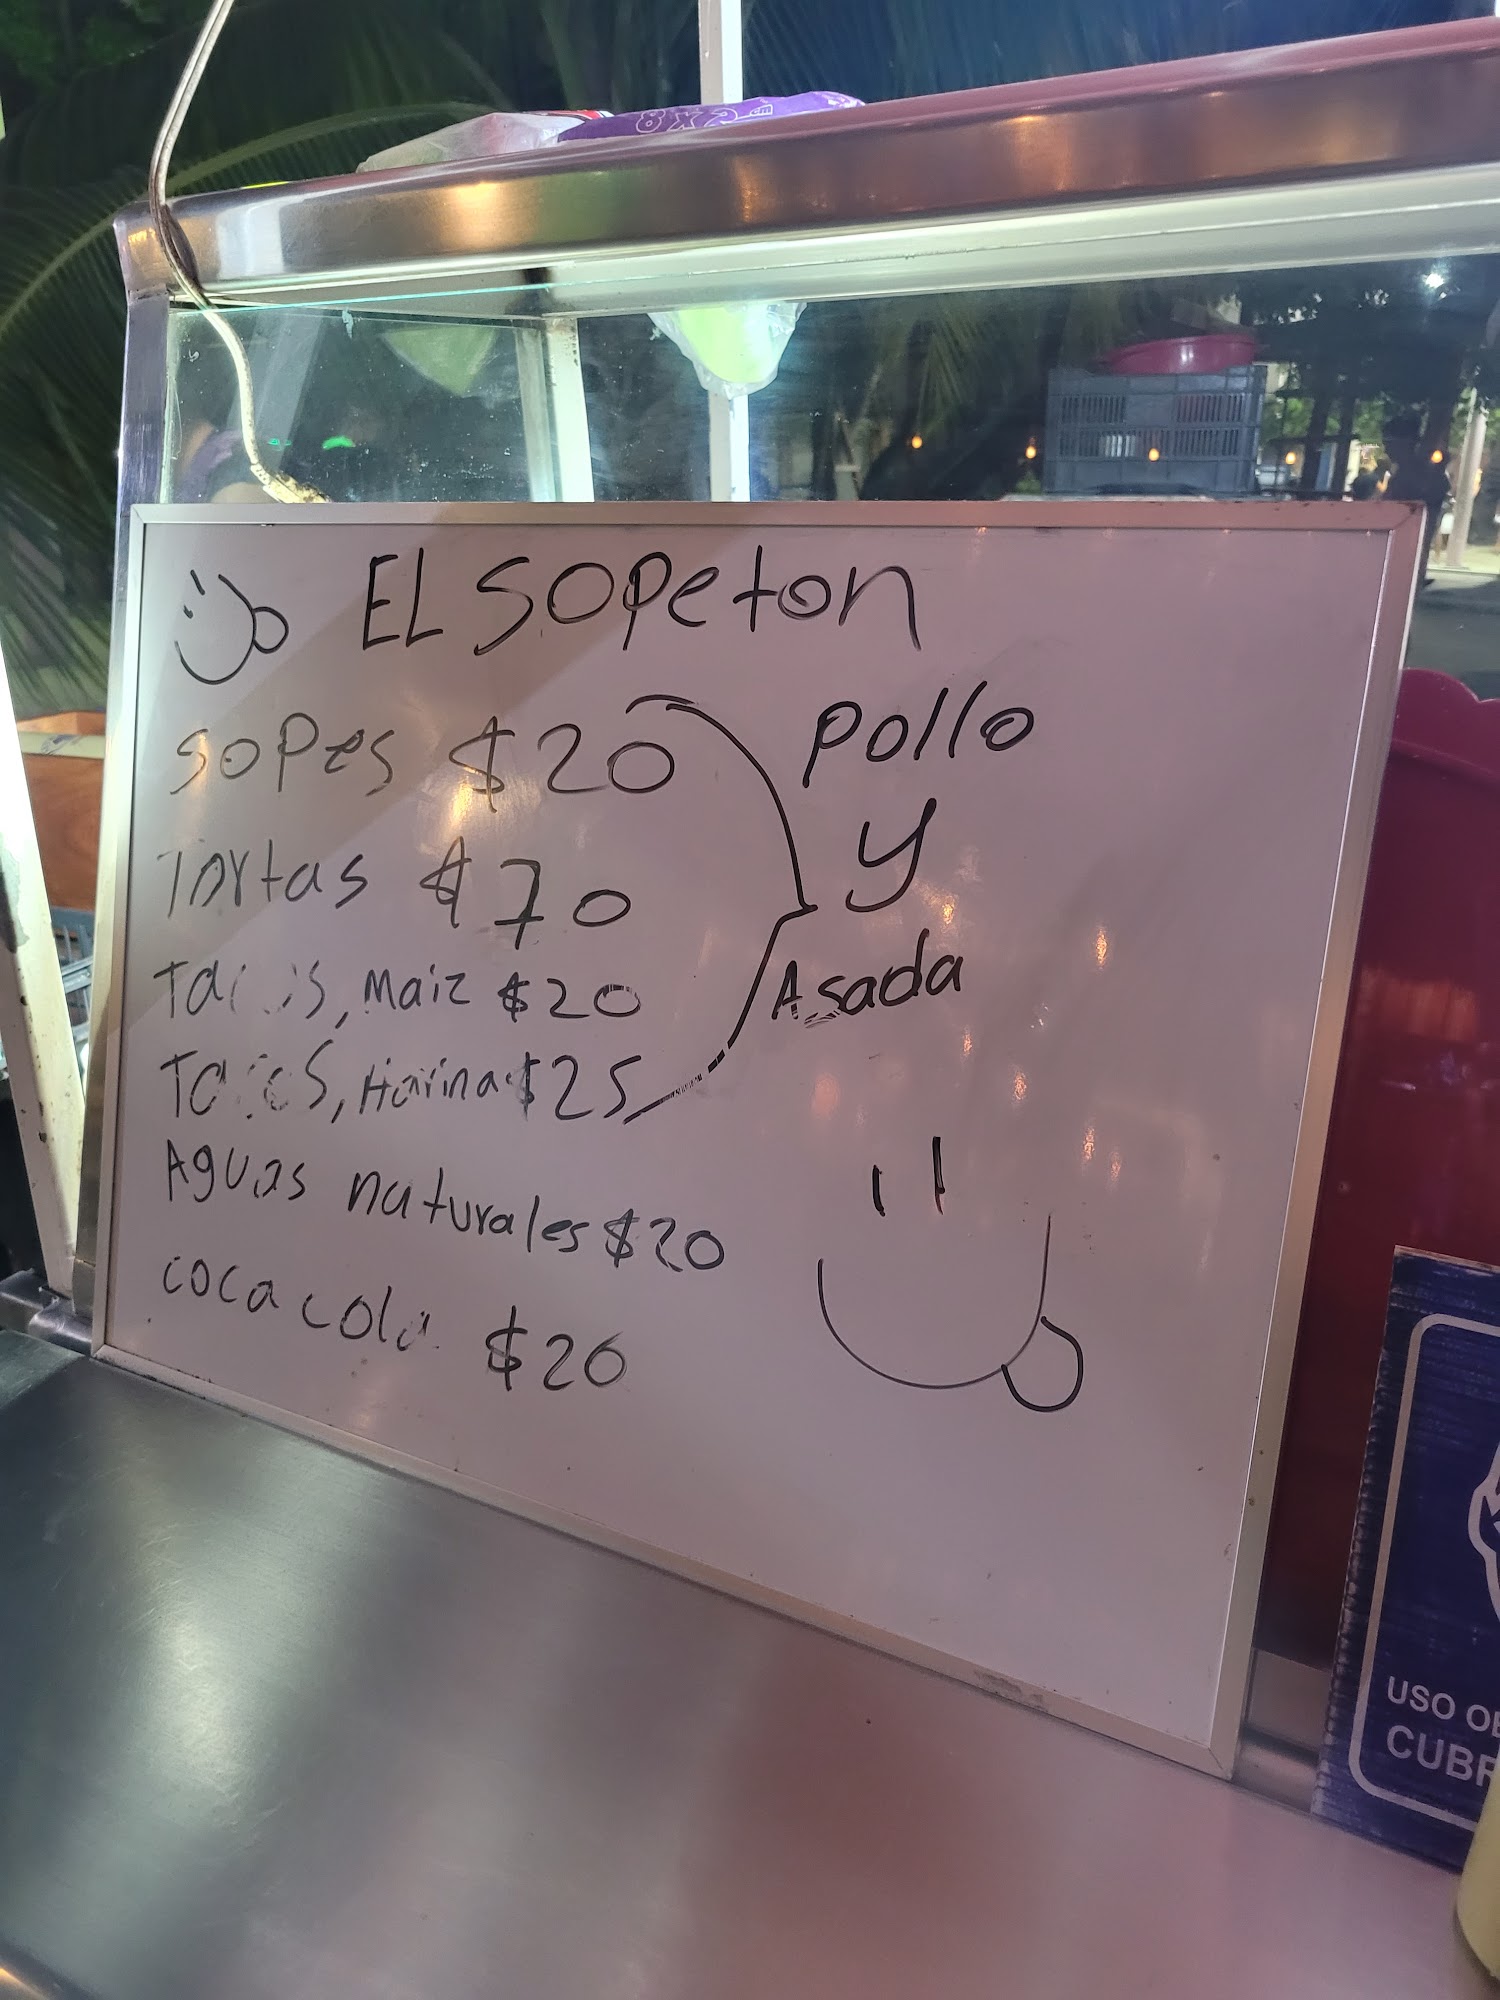 8 x 2
cm
EL Sopeton
Sopes $20
Tortas $70
Tacos, Maiz $20
Tacos, Harina $25
Pollo
y
Asada
Aguas naturales $20
coca cola $20
USO
CUBR